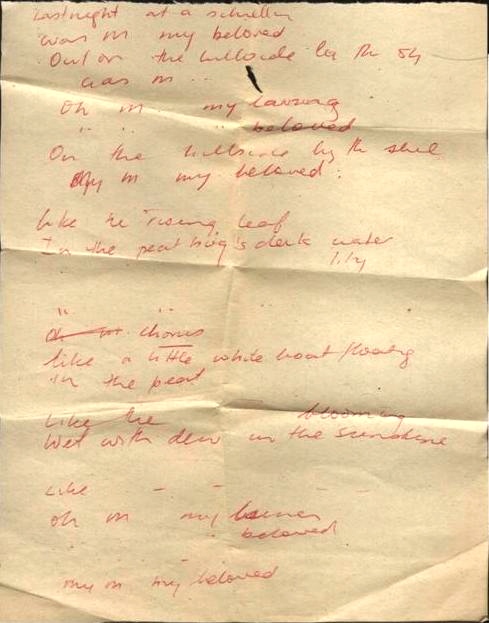 Last night at a shieling
was m my beloved
Out on the hillside by the sh
was m ..
Oh m my
" " " beloved
On the hillside by the
my m my beloved.
Like the rising leaf
In the peat bog's dark water
lily
" "
chorus
like a little white boat floating
in the peat
Like the blooming
Wet with dew in the sunshine
Like - - -
oh m my
beloved
my m my beloved